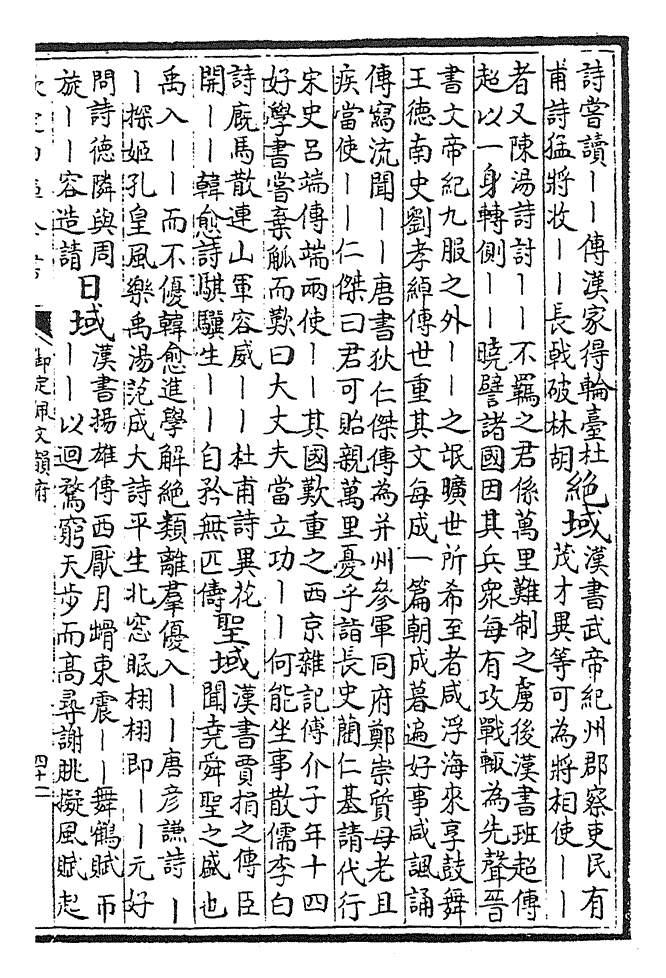 詩嘗讀丨丨傳漢家得輪臺杜
甫詩猛將收丨丨長戟破林胡
絶域
漢書武帝紀州郡察吏民有
茂才異等可為將相使丨丨
者又陳湯詩討丨丨不羈之君係萬里難制之虜後漢書班超傳
超以一身轉側丨丨曉譬諸國因其兵衆每有攻戰輒為先聲晉
書文帝紀九服之外丨丨之氓曠世所希至者咸浮海來享鼓舞
王德南史劉孝綽傳世重其文每成一篇朝成暮遍好事咸諷誦
傳寫流聞丨丨唐書狄仁傑傳為并州參軍同府鄭崇質母老且
疾當使丨丨仁傑曰君可貽親萬里憂乎詣長史藺仁基請代行
宋史呂端傳端兩使丨丨其國歎重之西京雜記傅介子年十四
好學書嘗棄觚而歎曰大丈夫當立功丨丨何能坐事散儒李白
詩廐馬散連山軍容威丨丨杜甫詩異花
開丨丨韓愈詩騏驥生丨丨自矜無匹儔
聖域
漢書賈捐之傳臣
聞堯舜聖之盛也
禹入丨丨而不優韓愈進學解絶類離羣優入丨丨唐彥謙詩丨
丨探姬孔皇風樂禹湯范成大詩平生北窓眠栩栩即丨丨元好
問詩德隣與周
旋丨丨容造請
日域
漢書揚雄傳西厭月東震丨丨舞鶴賦帀
丨丨以迴騖窮天步而高尋謝朓擬風賦起
御定佩文韻府
四十二